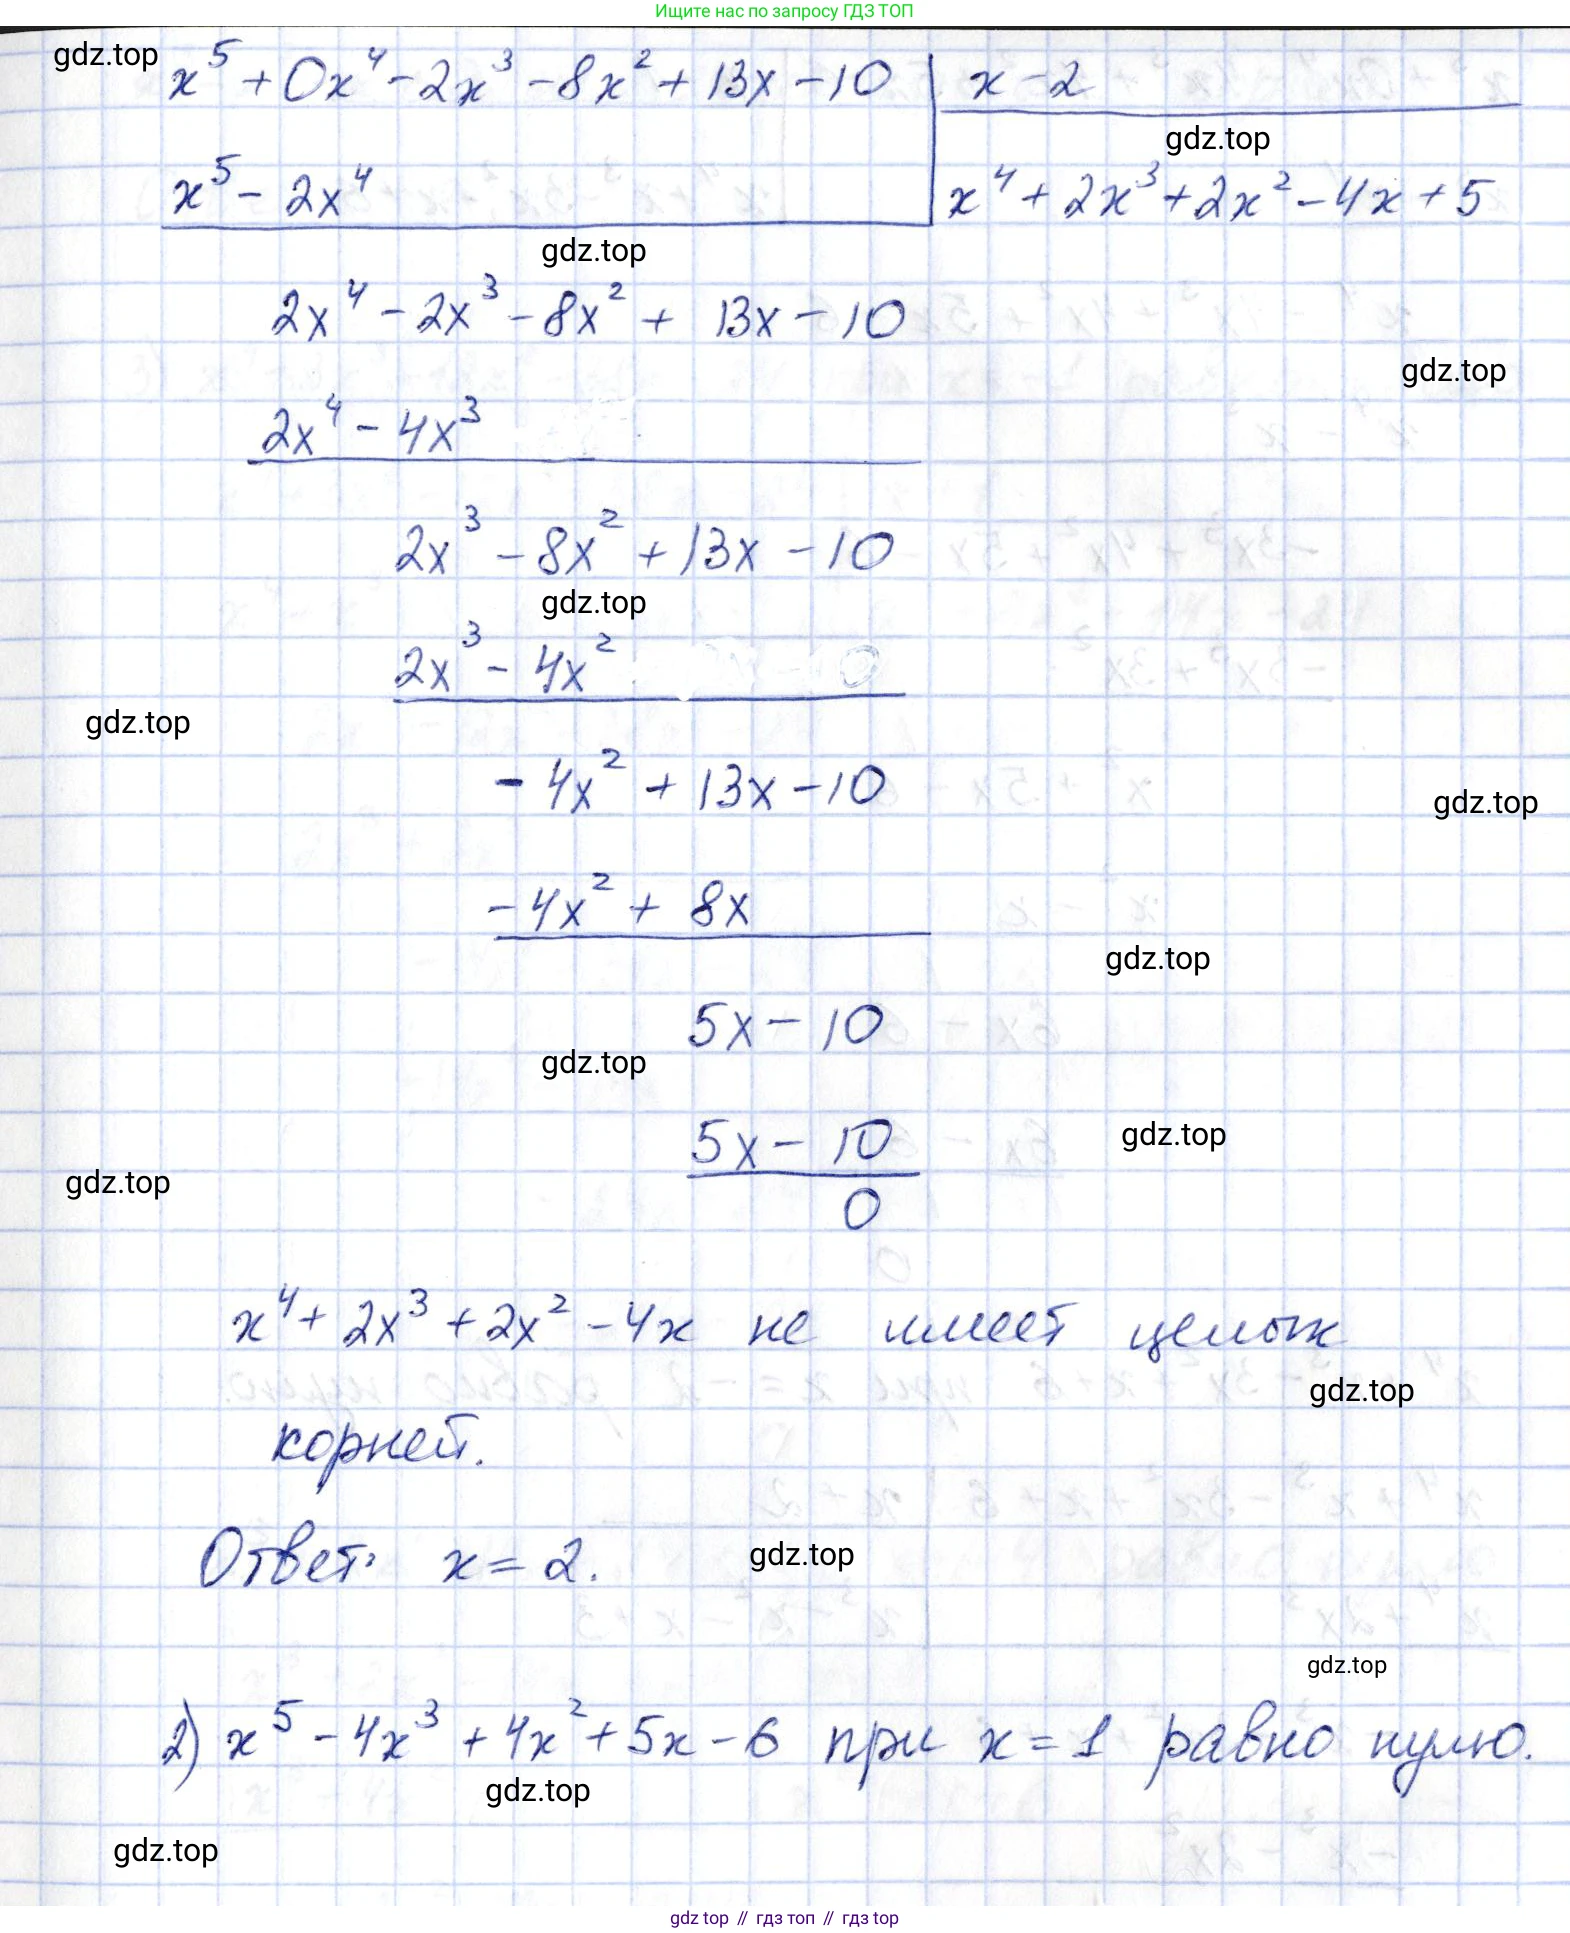 Ищите нас по запросу ГДЗ ТОП
gdz.top
x⁵ + 0x⁴ - 2x³ - 8x² + 13x - 10 | x - 2
gdz.top
x⁵ - 2x⁴
x⁴ + 2x³ + 2x² - 4x + 5
gdz.top
2x⁴ - 2x³ - 8x² + 13x - 10
gdz.top
2x⁴ - 4x³
2x³ - 8x² + 13x - 10
gdz.top
2x³ - 4x²
gdz.top
- 4x² + 13x - 10
gdz.top
- 4x² + 8x
gdz.top
5x - 10
gdz.top
5x - 10
gdz.top
gdz.top
0
x⁴ + 2x³ + 2x² - 4x не имеет целых
gdz.top
корней.
Ответ: x = 2.
gdz.top
gdz.top
2) x⁵ - 4x³ + 4x² + 5x - 6 при x = 1 равно нулю.
gdz.top
gdz.top
gdz top // гдз топ // гдз top